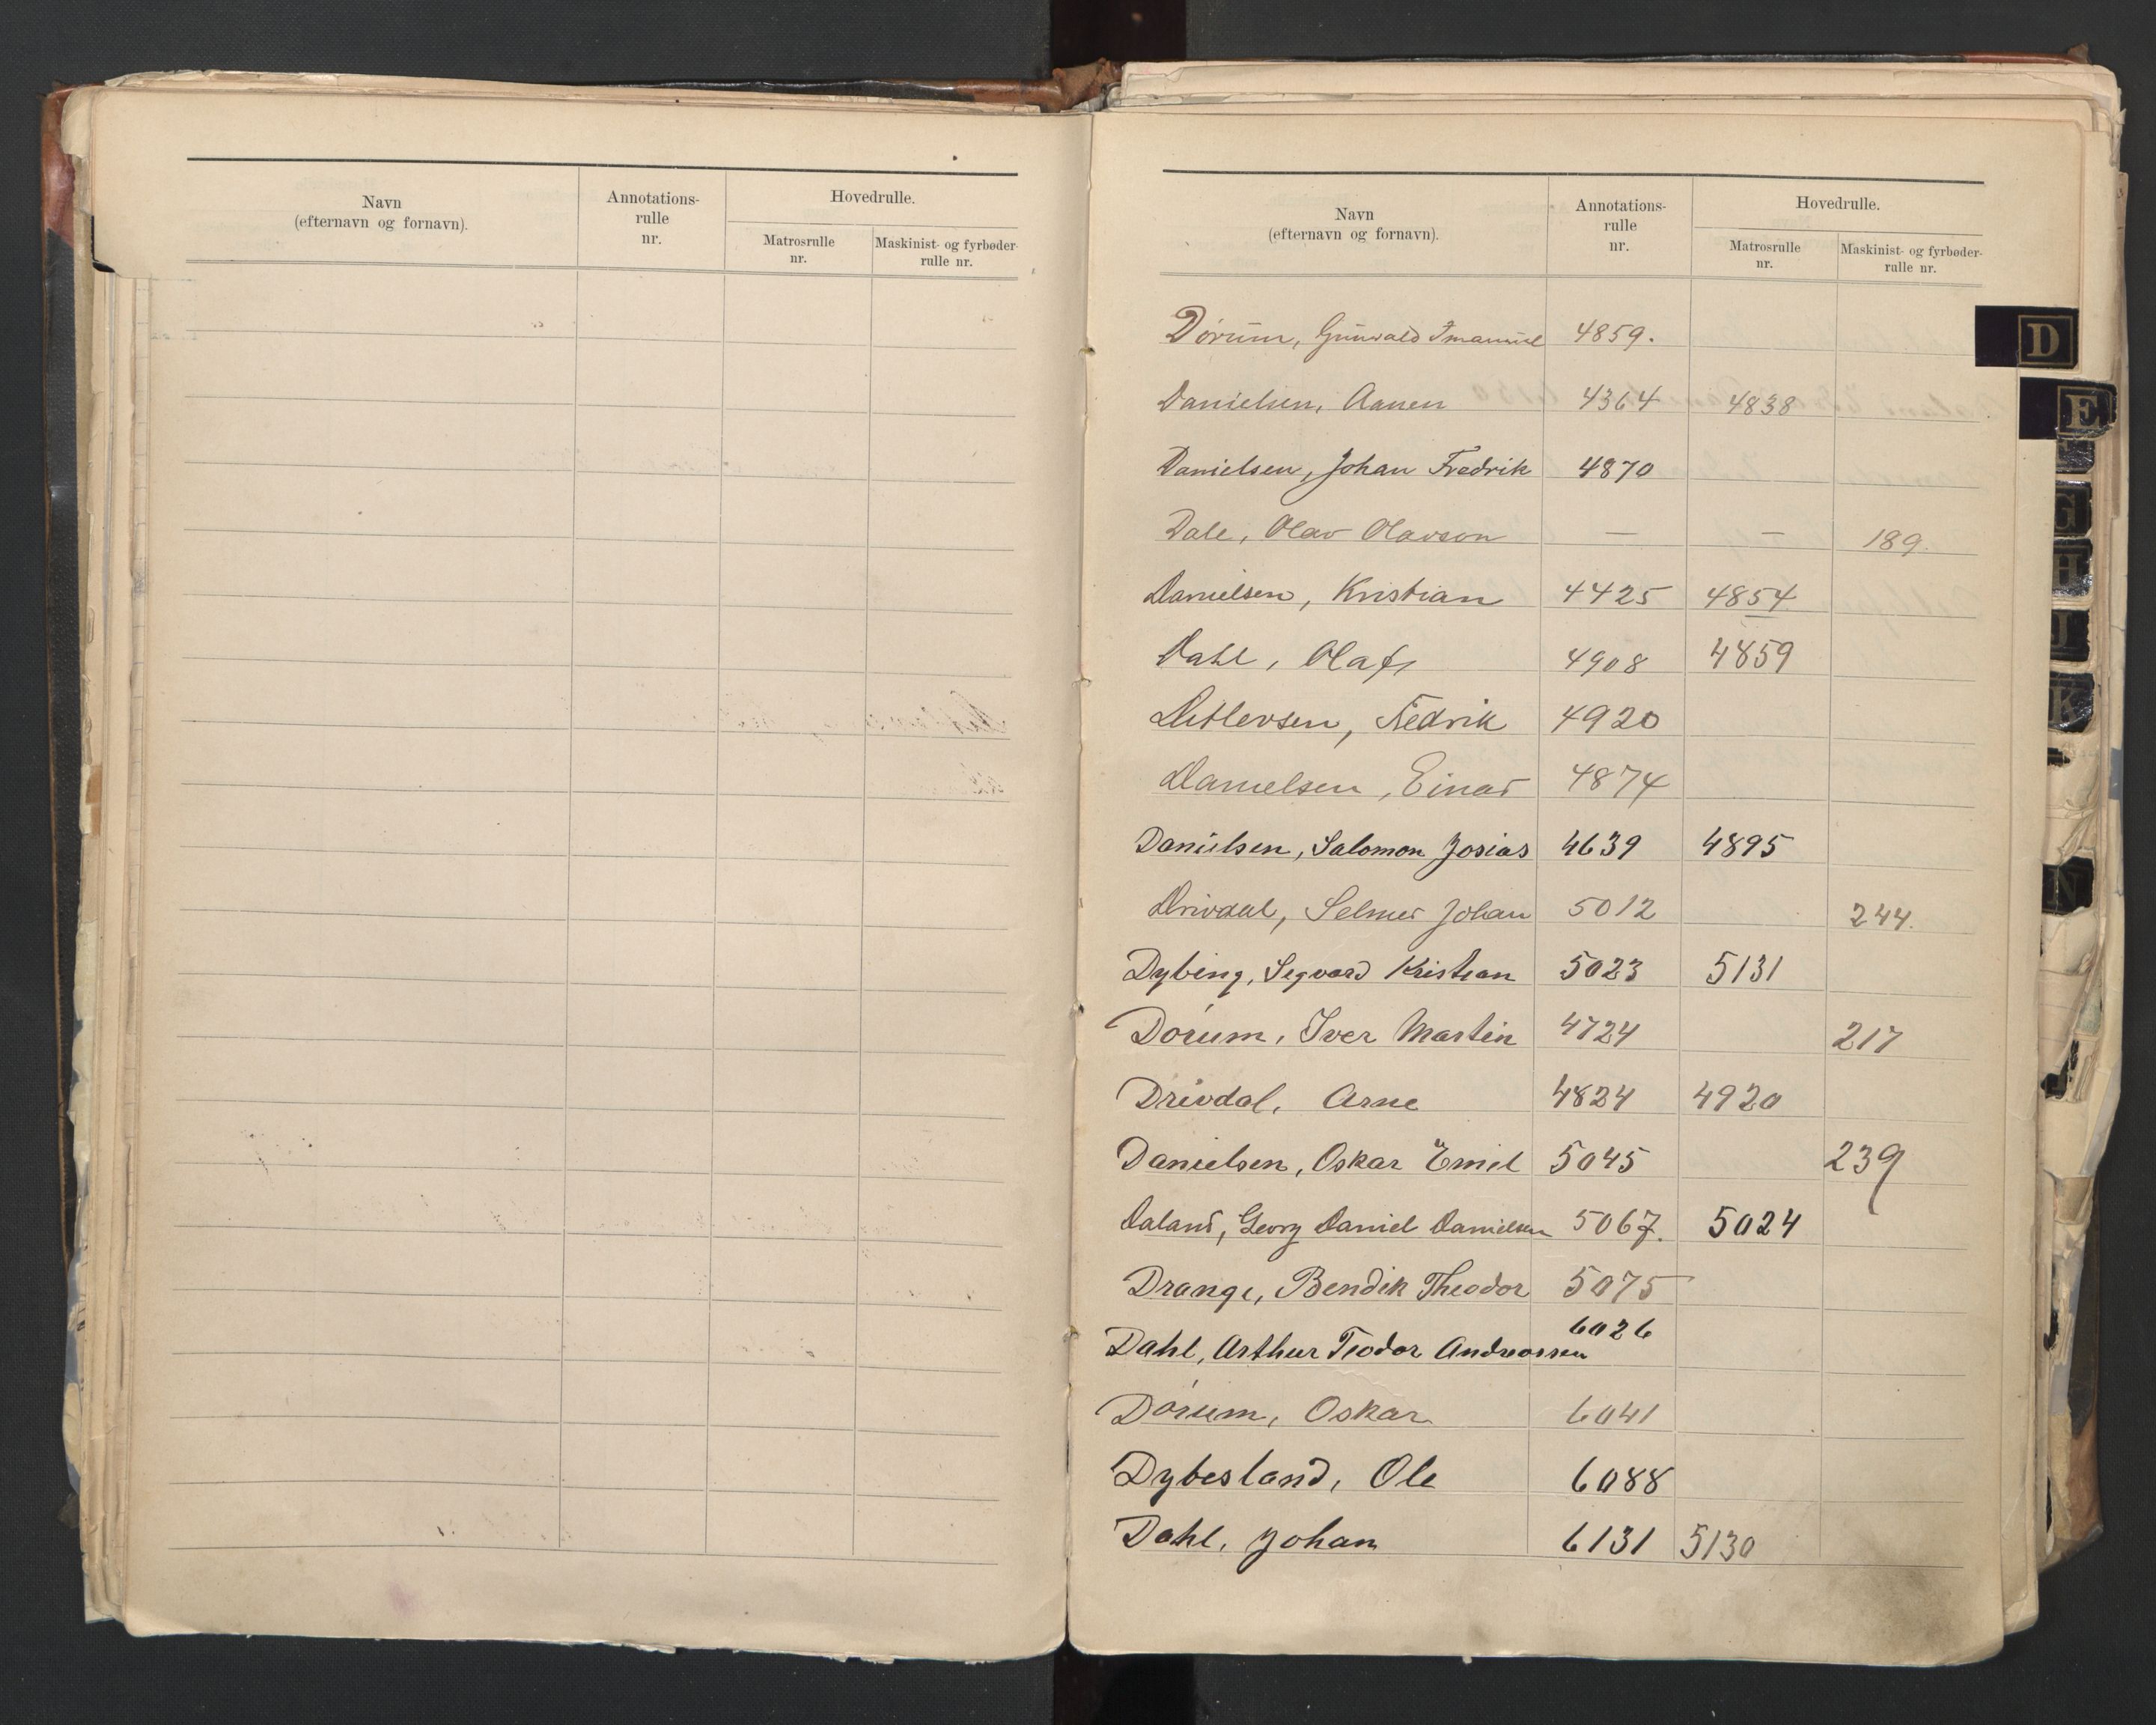 Navn
(efternavn og fornavn).
Annotations-
rulle
nr.
Hovedrulle.
Matrosrulle
nr.
Maskinist- og fyrbøder-
rulle nr.
Navn
(efternavn og fornavn).
Annotations-
rulle
nr.
Hovedrulle.
Matrosrulle
nr.
Maskinist- og fyrbøder-
rulle nr.
Dørum, Gunvald Imanuel 4859.
Danielsen, Aanen 4364 4838
Danielsen, Johan Fredrik 4870
Dale, Olav Olavson — — 189.
Danielsen, Kristian 4425 4854
Dahl, Olaf 4908 4859
Ditlevsen, Fredrik 4920
Danielsen, Einar 4874
Danielsen, Salomon Josias 4639 4895
Drivdal, Selmer Johan 5012 244.
Dybing, Segvard Kristian 5023 5131
Dørum, Iver Martin 4724 217
Drivdal, Arne 4824 4920
Danielsen, Oskar Emil 5045 239
Daland, Georg Daniel Danielsen 5067. 5024
Drange, Bendik Theodor 5075
Dahl, Arthur Teodor Andreassen 6026
Dørum, Oskar 6041
Dybesland, Ole 6088
Dahl, Johan 6131 5130
D
E
G
H
J
K
N